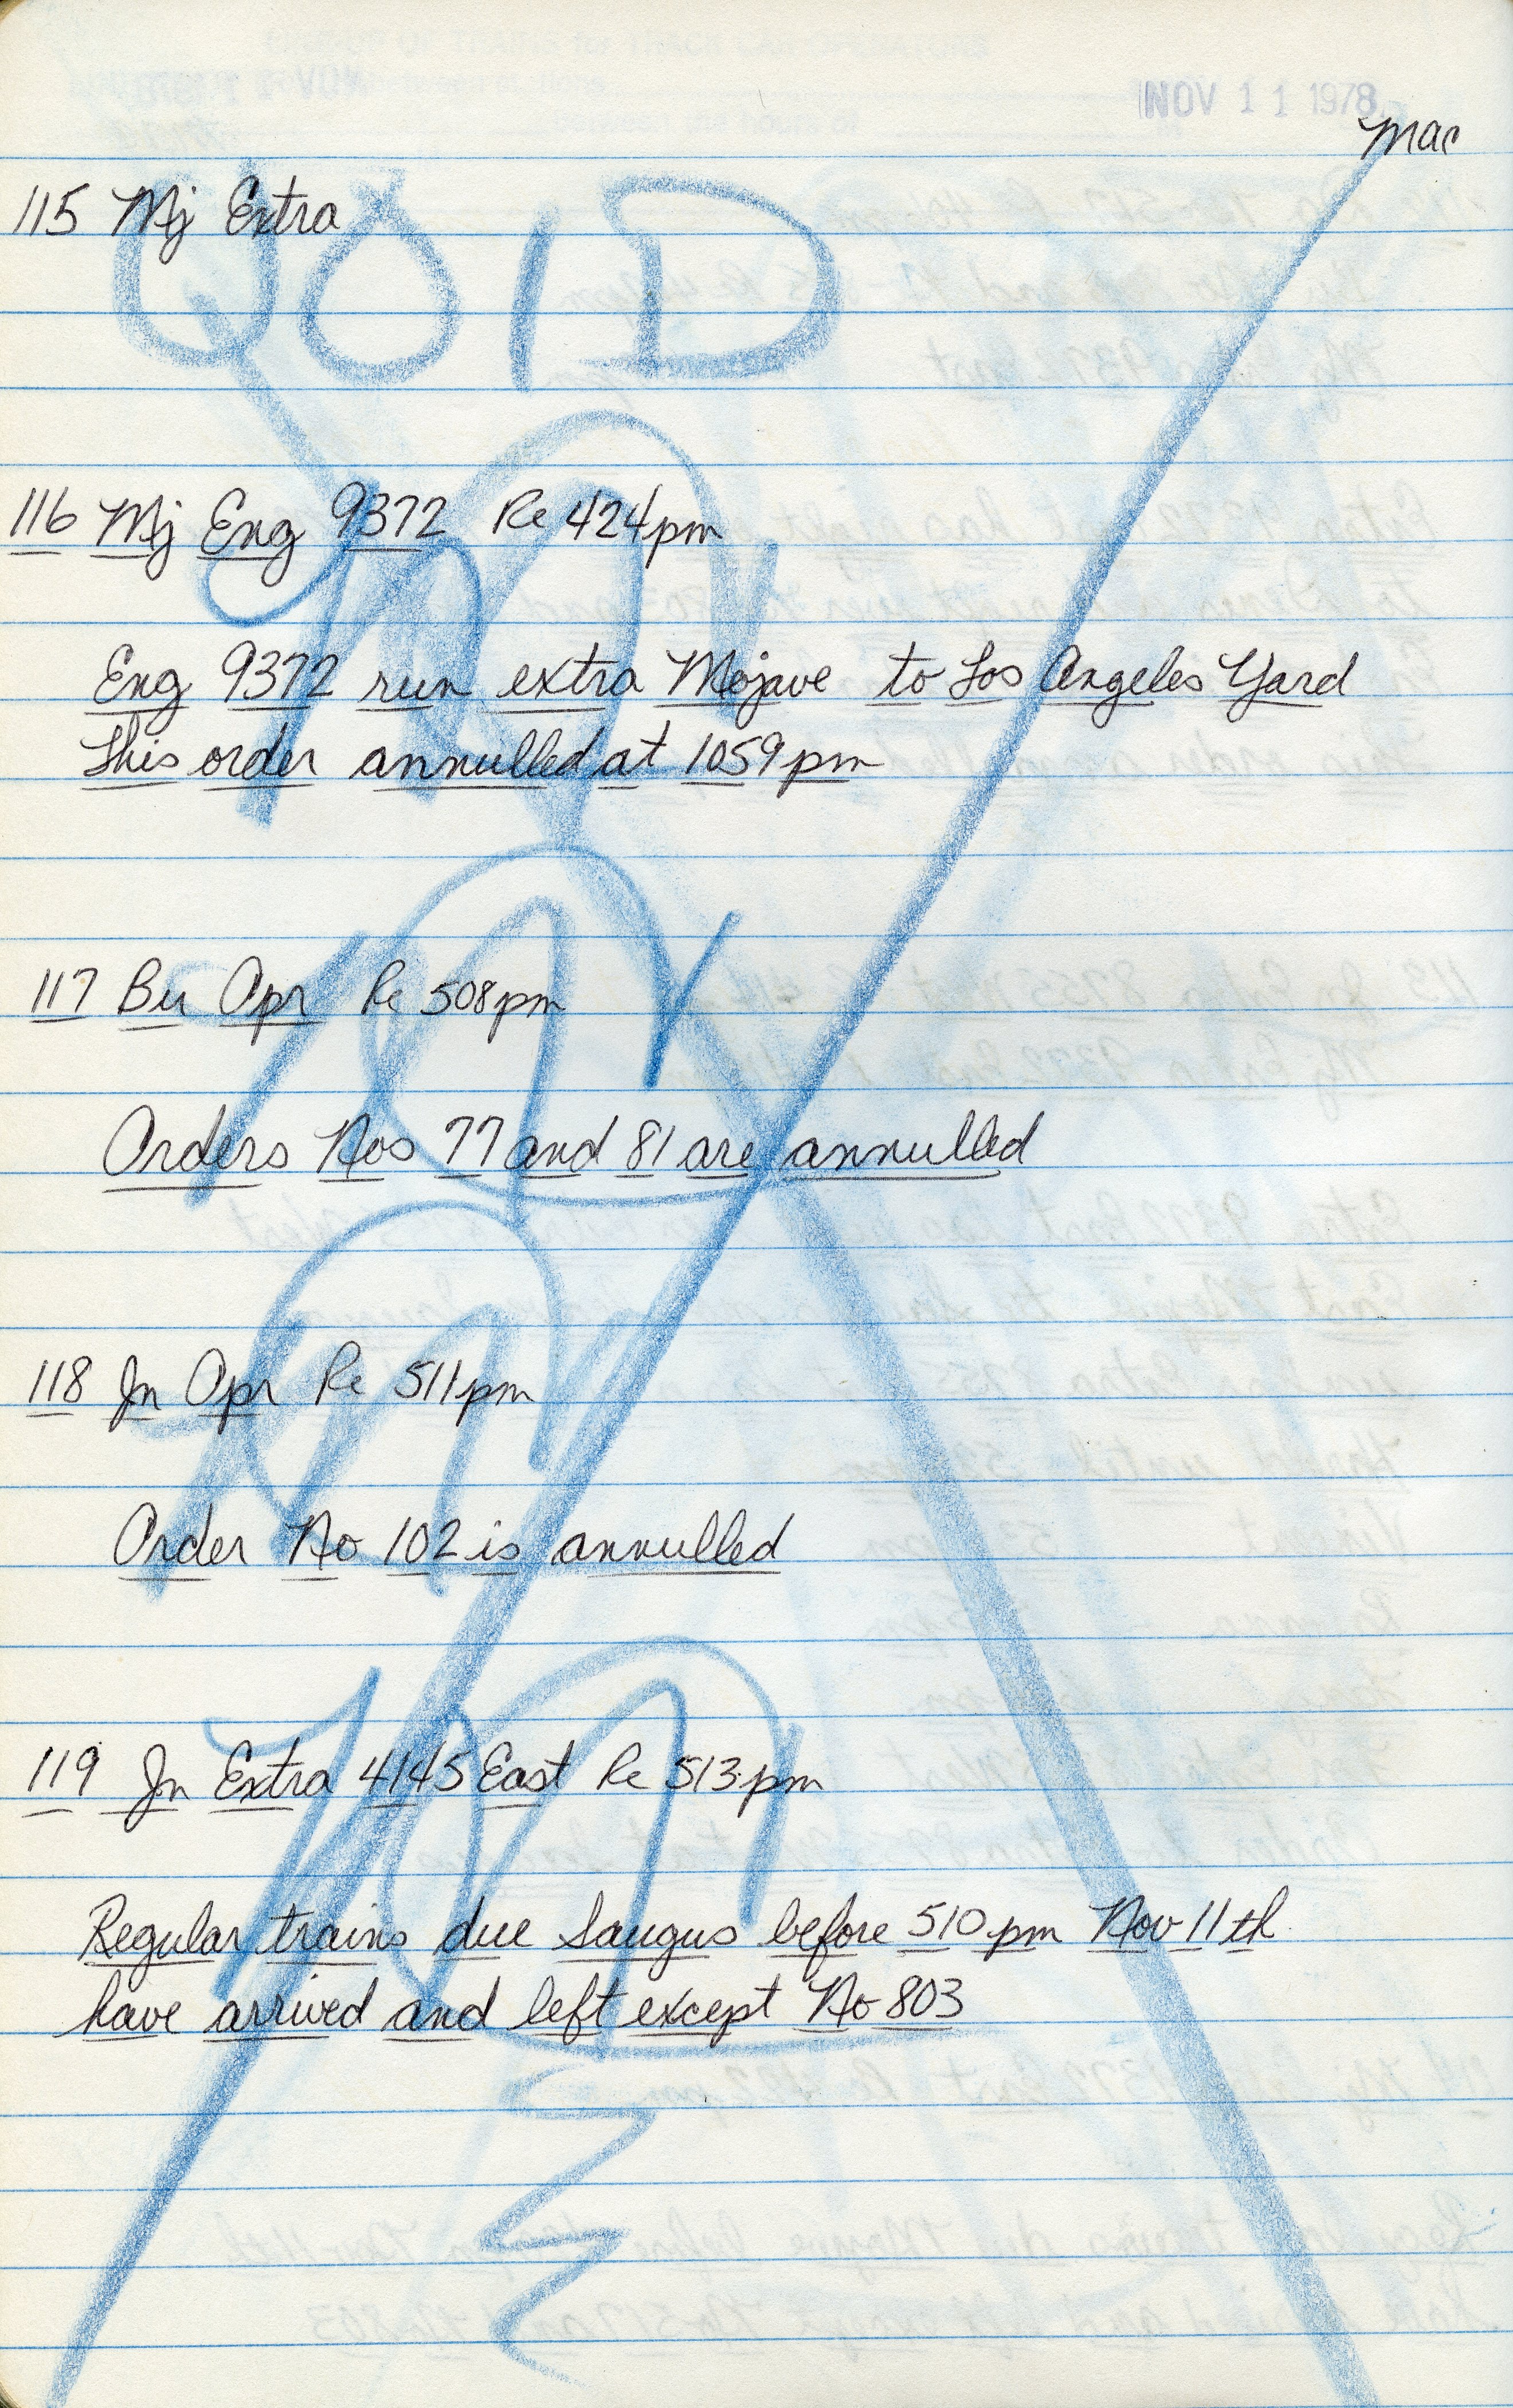 NOV 11 1978
Mac
115 Mj Extra
VOID
116 Mj Eng 9372 Re 424pm
Eng 9372 run extra Mojave to Los Angeles Yard
This order annulled at 1059pm
117 Bu Opr Re 508pm
Orders Nos 77 and 81 are annulled
118 Jn Opr Re 511pm
Order No 102 is annulled
119 Jn Extra 4145 East Re 513pm
Regular trains due Saugus before 510pm Nov 11th
have arrived and left except No 803